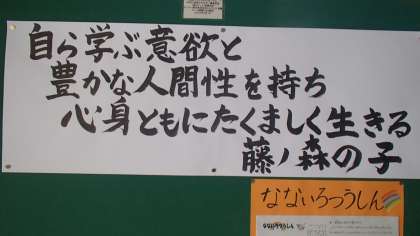 自ら学ぶ意欲と
豊かな人間性を持ち
心身ともにたくましく生きる
藤ノ森の子
なないろつうしん
なないろつうしん